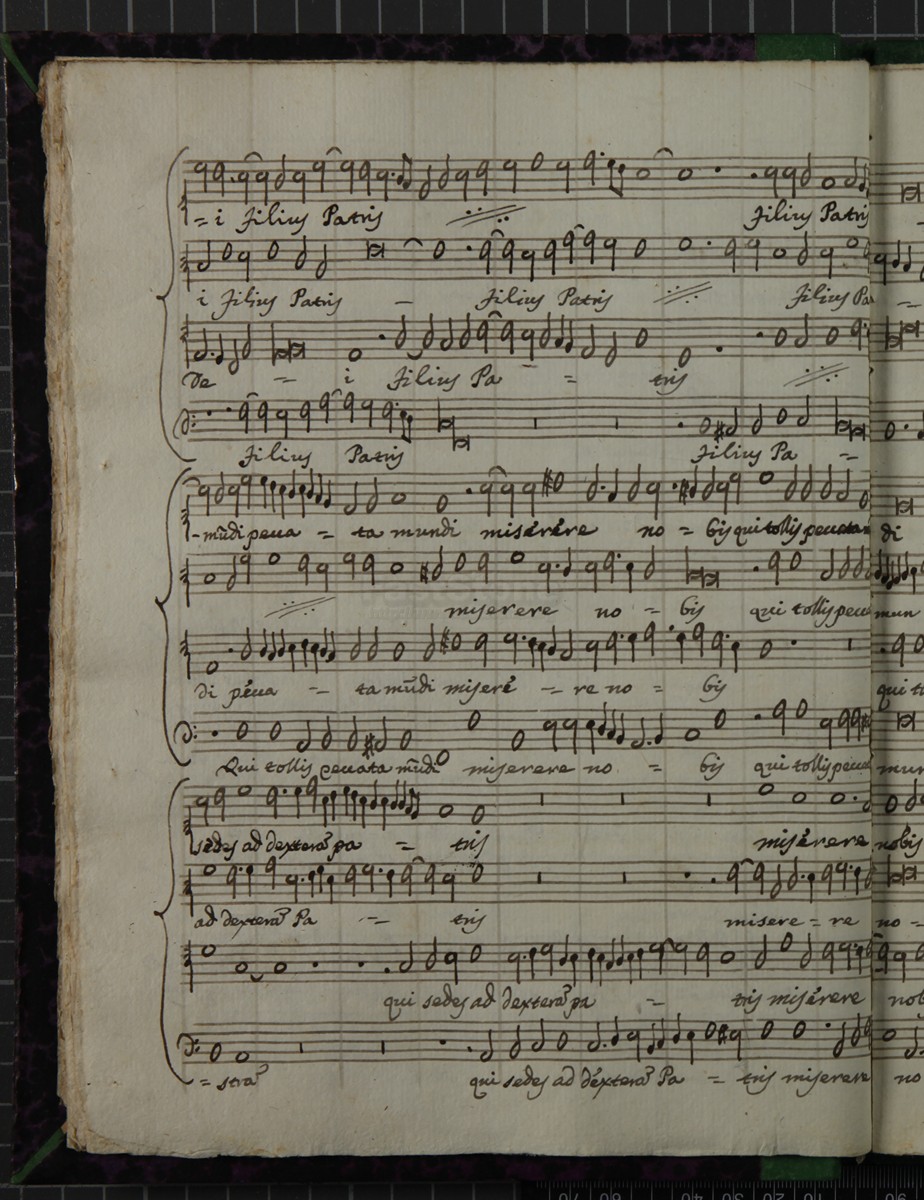 = i Filius Patris Filius Patris
i Filius Patris – Filius Patris Filius Pa
De = i Filius Pa = tris
Filius Patris Filius Pa =
-mũdi pecca = ta mundi miserére no = bis qui tollis peccata di
miserere no = bis qui tollis pecca mun
di pécca = ta mũdi miseré = re no = bis qui to
Qui tollis peccata mũdi miserere no = bis qui tollis pecca mun
sedes ad dexterã pa = tris misérere nobis
ad dexterã Pa = tris misere = re no =
qui sedes ad dexterã pa = tris misérere nob
= strã qui sedes ad déxterã Pa = tris miserere no
70 60 20 30